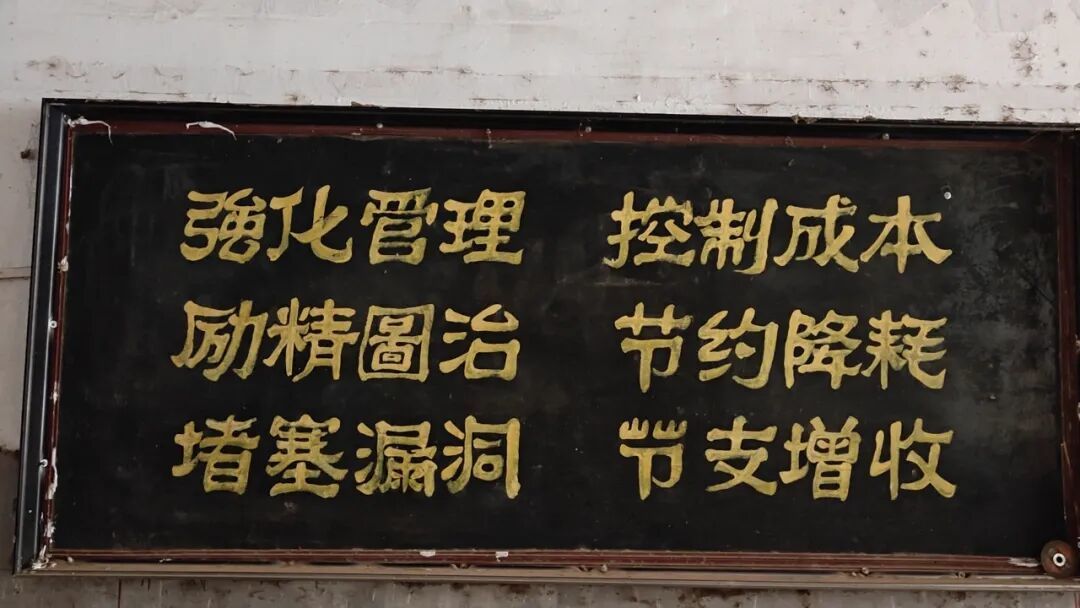 強化管理 控制成本
励精圖治 节约降耗
堵塞漏洞 节支增收